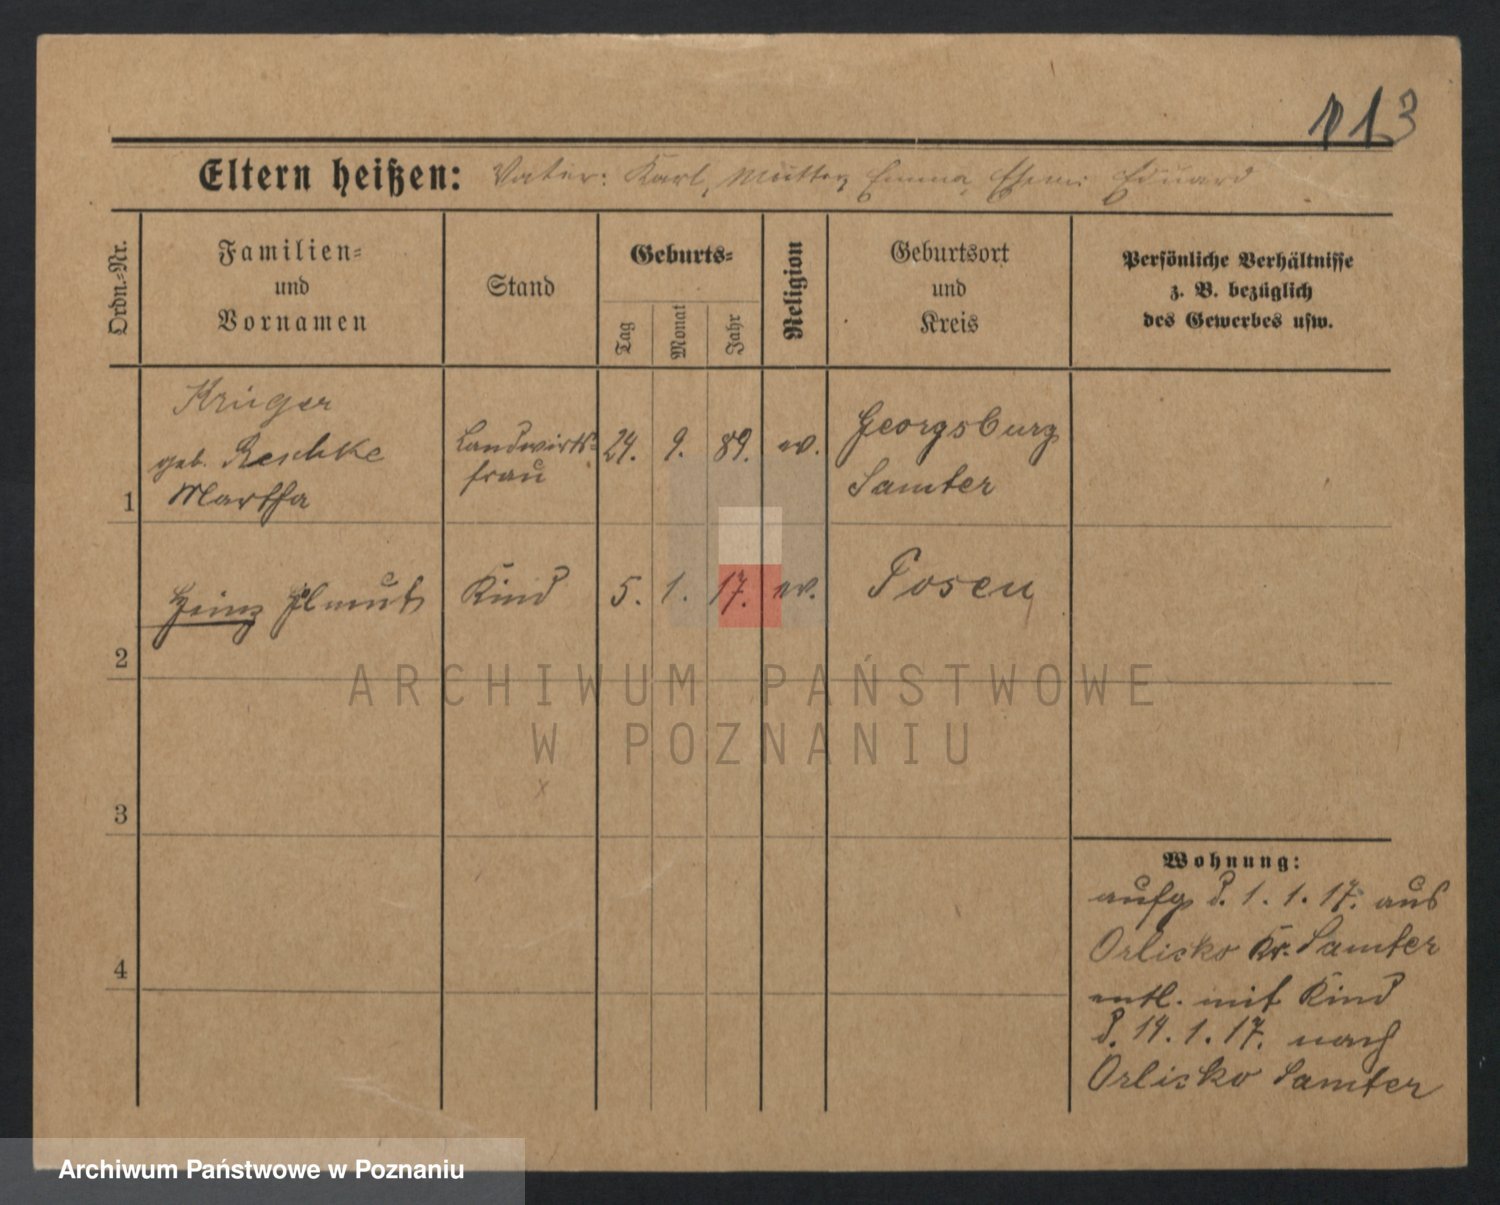 113
Eltern heißen: Vater: Karl, Mutter Emma, Ehem: Eduard
Ordn.-Nr.
Familien-
und
Vornamen
Stand
Geburts-
Tag
Monat
Jahr
Religion
Geburtsort
und
Kreis
Persönliche Verhältnisse
z. B. bezüglich
des Gewerbes usw.
1
Krüger
geb. Reschke
Martha
Landwirts-
frau
24. 9. 89. ev.
Georgsburg
Samter
2
Heinz
Kind
5. 1. 17. ev.
Posen
3
4
Wohnung:
aufg d. 1. 1. 17. aus
Orlisko Kr. Samter
entl. mit Kind
d. 14. 1. 17. nach
Orlisko Samter
ARCHIWUM PAŃSTWOWE
W POZNANIU
Archiwum Państwowe w Poznaniu